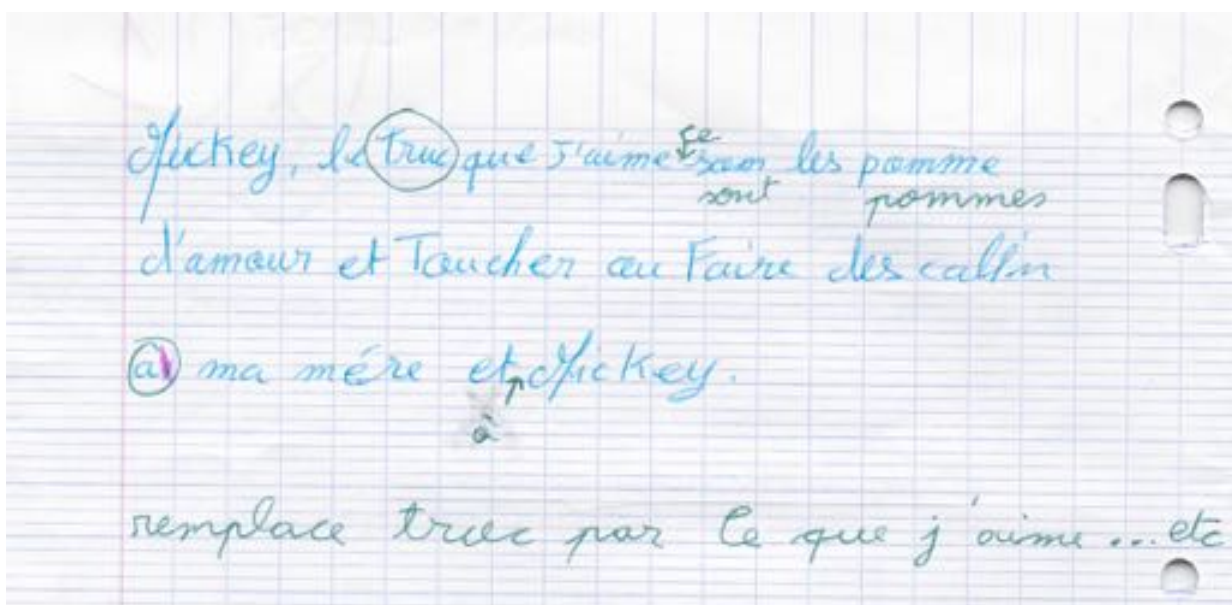 Mickey, le truc que J'aime ce son les pomme
sont pommes
d'amour et Toucher ou Faire des callin
à ma mére et Mickey.
à
remplace truc par Ce que j'aime...etc